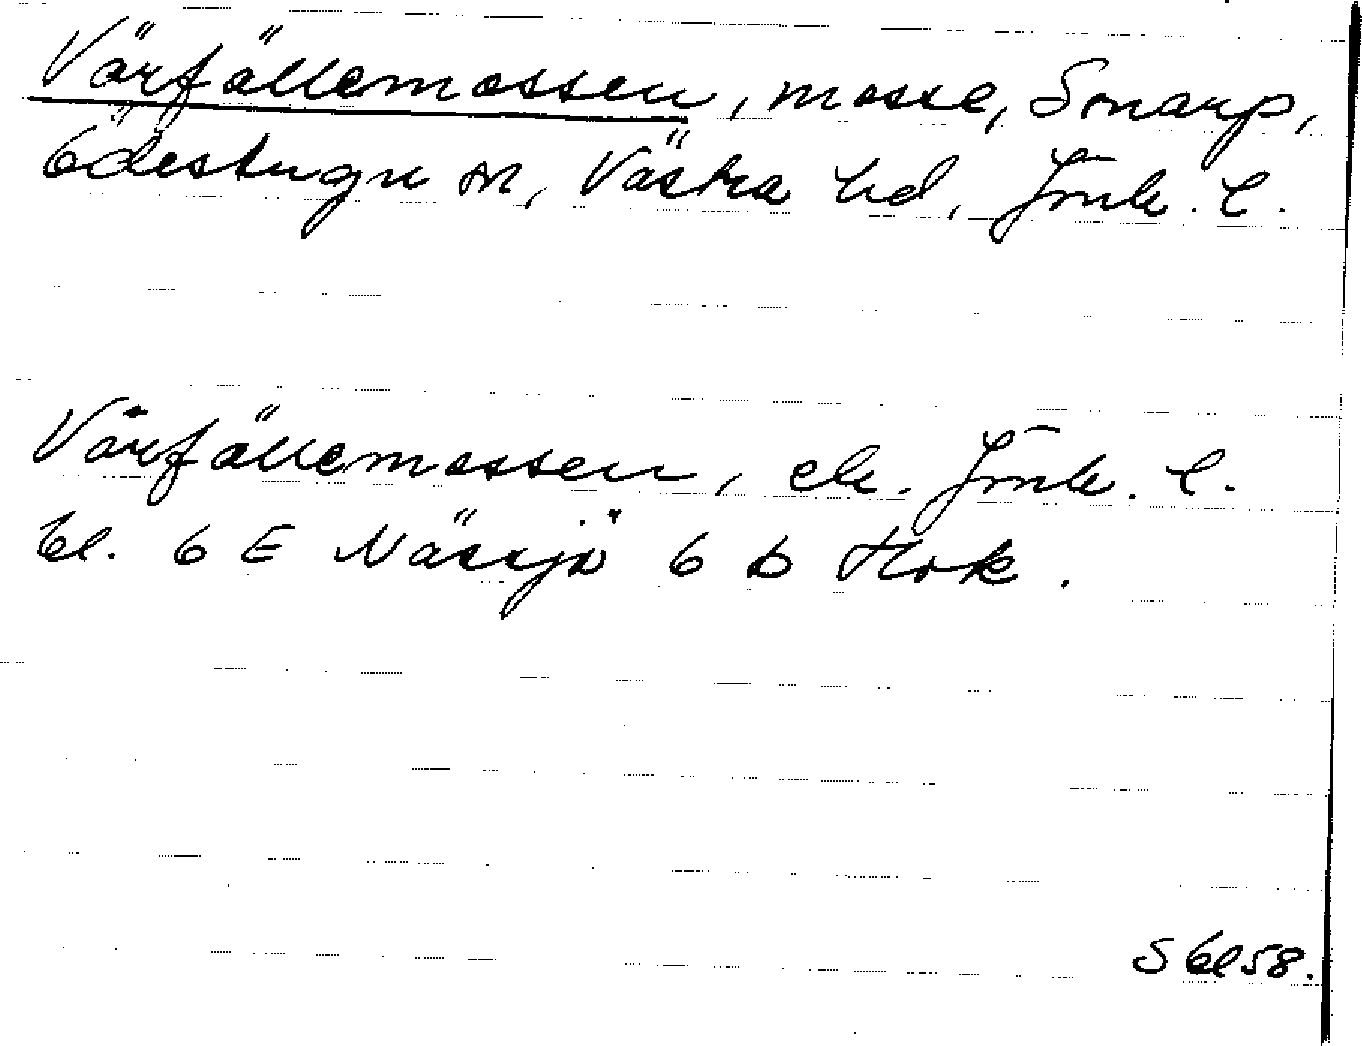 Värfällemossen, mosse, Smarp,
Ödestugu sn, Västra hd, Jönk. l.
Värfällemossen, ek. Jönk. l.
bl. 6 E Nässjö 6 b Hok.
S Bl 58.